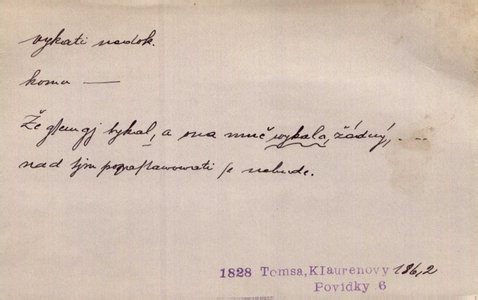 vykati nedok.
komu —
Že gſem gj tykal, a ona mně wykala, žádný, ...
nad tjm pozaſtawowati ſe nebude.
1828 Tomsa, Klaurenovy 136,2
Povídky 6